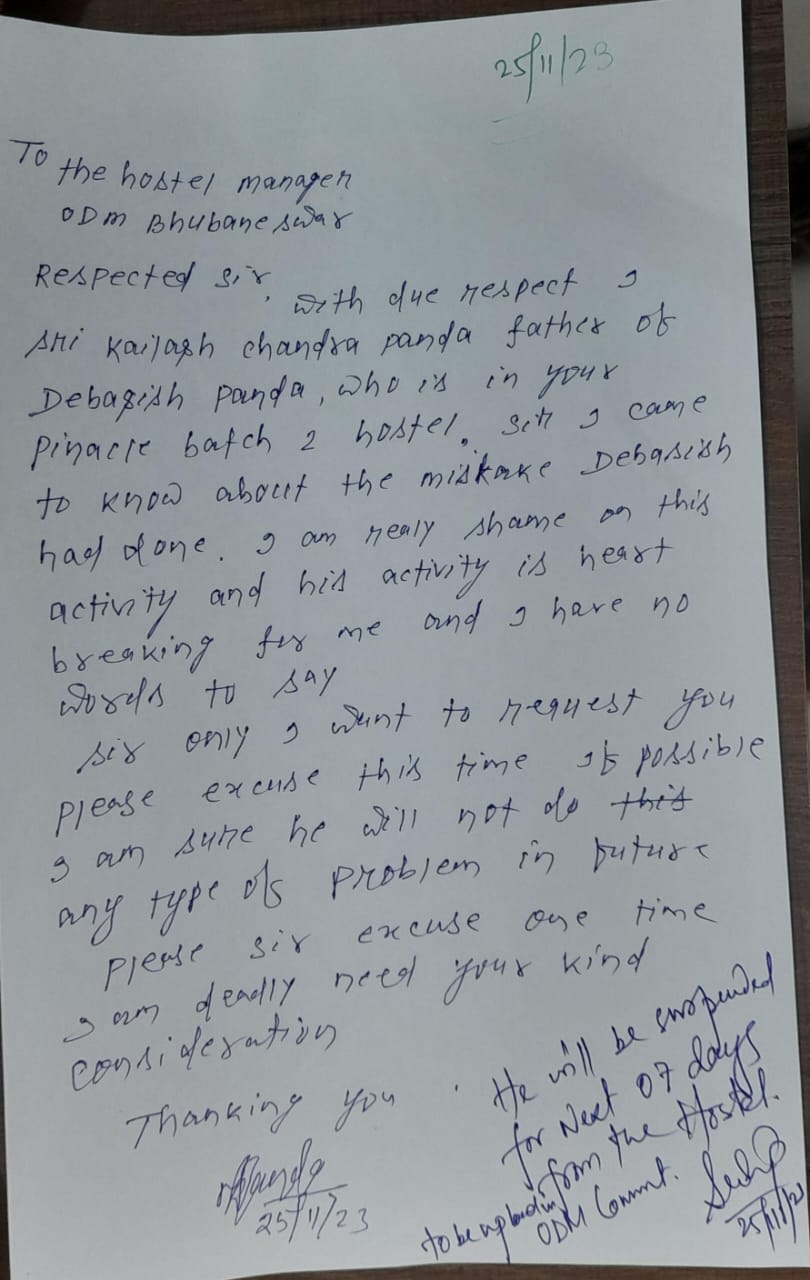 25/11/23
To
the hostel manager
ODM Bhubaneswar
Respected Sir,
with due respect I
Sri Kailash chandra panda father of
Debasish panda, who is in your
Pinacle batch 2 hostel. Sir I came
to know about the mistake Debasish
had done. I am realy shame on this
activity and his activity is heart
breaking for me and I have no
words to say
Sir only I want to request you
please excuse this time If possible
I am sure he will not do this
any type of problem in future
Please sir excuse one time
I am deadly need your kind
consideration
Thanking you.
He will be suspended
for Next 07 days
from the Hostel.
to be uploaded in
ODM Commt.
Panda
25/11/23
25/11/2